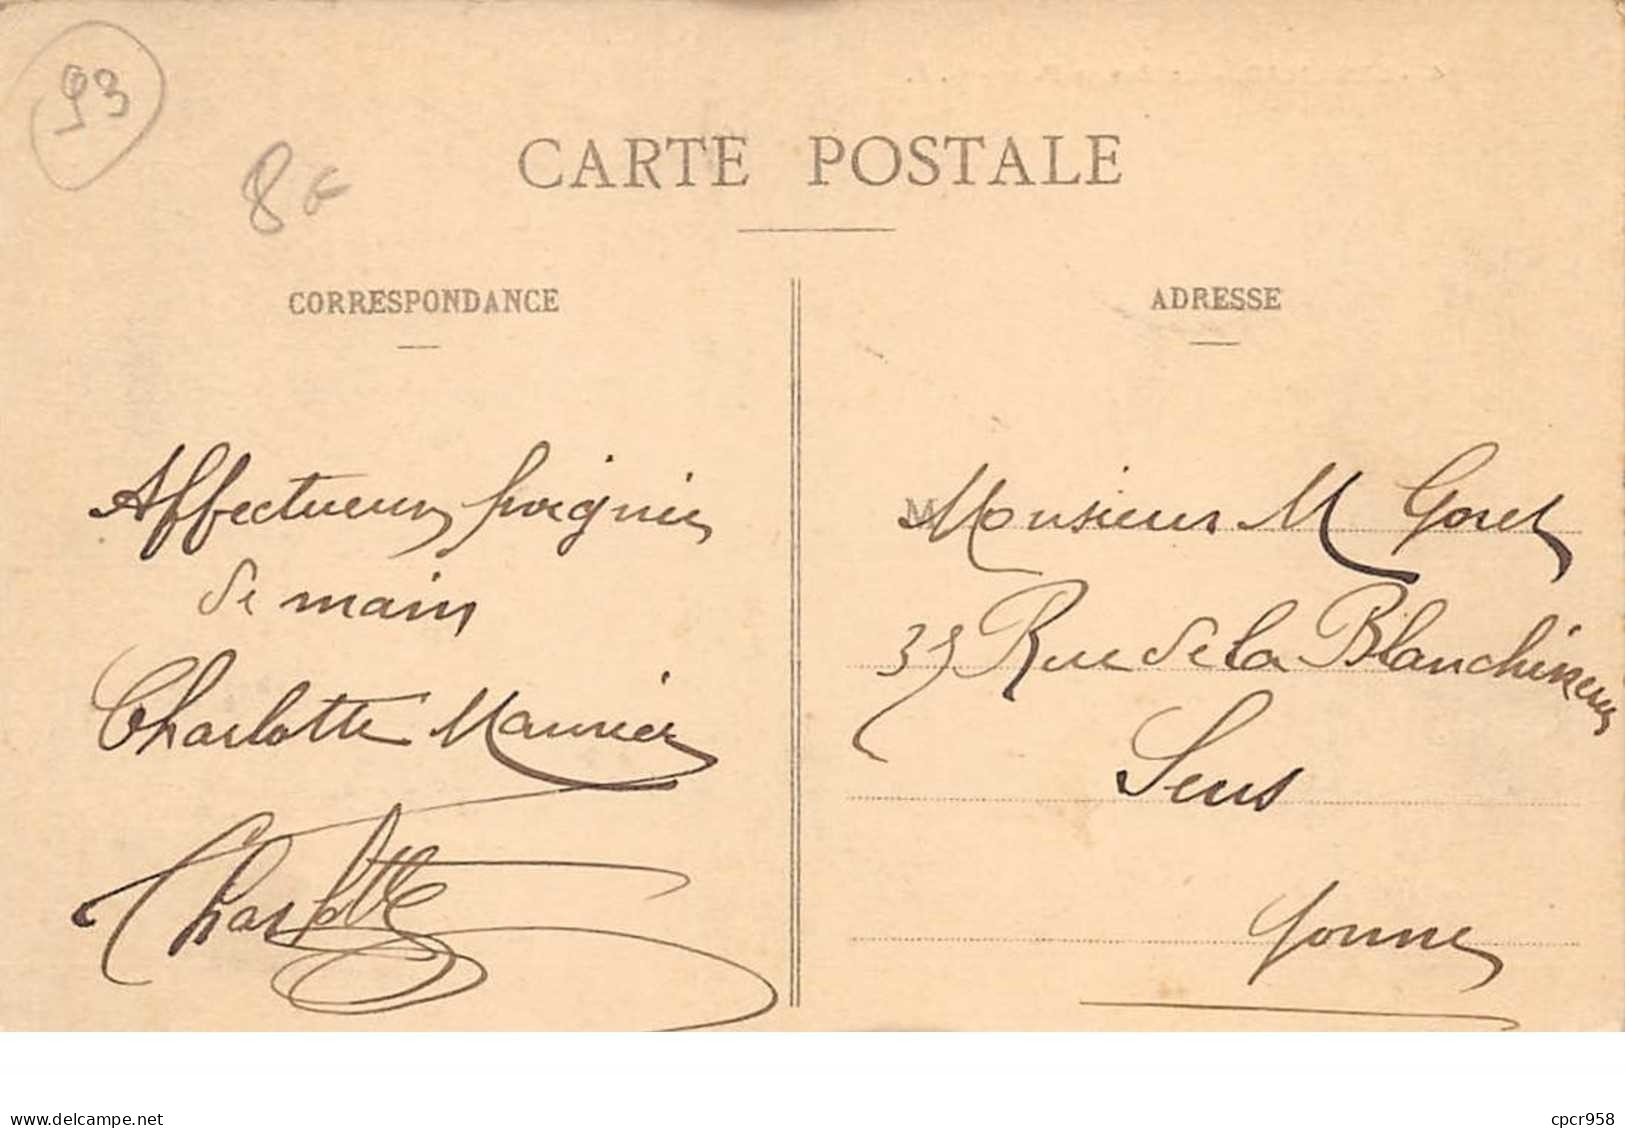 93
8€
CARTE POSTALE
CORRESPONDANCE
Affectueuses poignées
de main
Charlotte Maurier
Charlotte
ADRESSE
Monsieur M Goret
35 Rue de la Blanchisserie
Sens
Yonne
www.delcampe.net
cpcr958